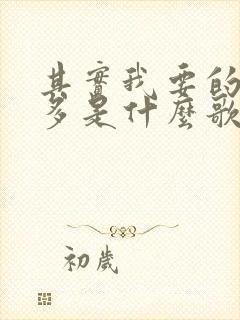 其實我要的
多是什麼歌
初歲